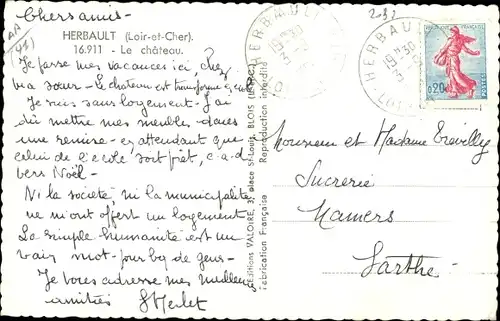 Chers amis -
HERBAULT (Loir-et-Cher).
16.911 - Le château.
Je passe mes vacances ici chez
ma sœur - Le chateau est transformé
Je suis sans logement - J'ai
dû mettre mes meubles dans
une remise - en attendant que
celui de l'école soit prêt, c. a. d
vers Noël -
Ni la société, ni la municipalité
ne m'ont offert un logement
La simple humanité est un
vain mot - pour bq de gens -
Je vous adresse mes meilleures
amitiés
Editions VALOIRE, 37, place St-Louis, BLOIS
Fabrication Française Reproduction interdite
HERBAULT
19H30
HERBAULT
19H30
RÉPUBLIQUE FRANÇAISE
0,20
POSTES
Monsieur et Madame
Sucrerie
Mamers
Sarthe -